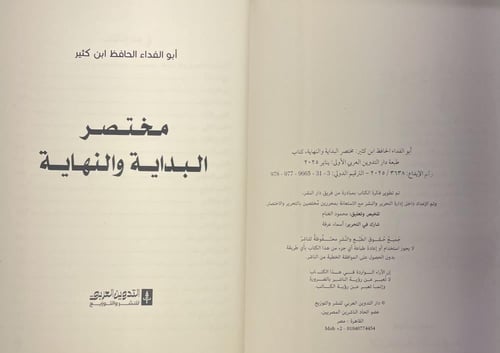 أبو الفداء الحافظ ابن كثير
مختصر
البداية والنهاية
التدوين العربي
للنشر والتوزيع
أبو الفداء الحافظ ابن كثير: مختصر البداية والنهاية، كتاب
طبعة دار التدوين العربي الأولى: يناير ٢٠٢٥
رقم الإيداع: ٣٦٣٨ / ٢٠٢٥ - الترقيم الدولي: 3 - 31 - 9665 - 977 - 978
تم تطوير فكرة الكتاب بمبادرة من فريق دار النشر.
وتم الإعداد داخل إدارة التحرير والنشر مع الاستعانة بمحررين مختصين بالتحرير والاختصار.
تلخيص وتعليق: محمود الغنام
شارك في التحرير: أسماء عرفة
جَميعُ حُـقـوق الطَّبْـع والنَّشر محـفُوظَةٌ للنَاشر
لا يجوز استخدام أو إعادة طباعة أي جزء من هذا الكتاب بأي طريقة
بدون الحصول على الموافقة الخطية من الناشر.
إن الآراء الـواردة فـي هـذا الكتـاب
لا تـعبـر عـن رؤيـة الناشر بالضرورة
وإنمـا تعبـر عـن رؤيـة الكـاتب.
© دار التدوين العربي للنشر والتوزيع
عضو اتحاد الناشرين المصريين.
القاهرة - مصر
Mob +2 - 01040774454